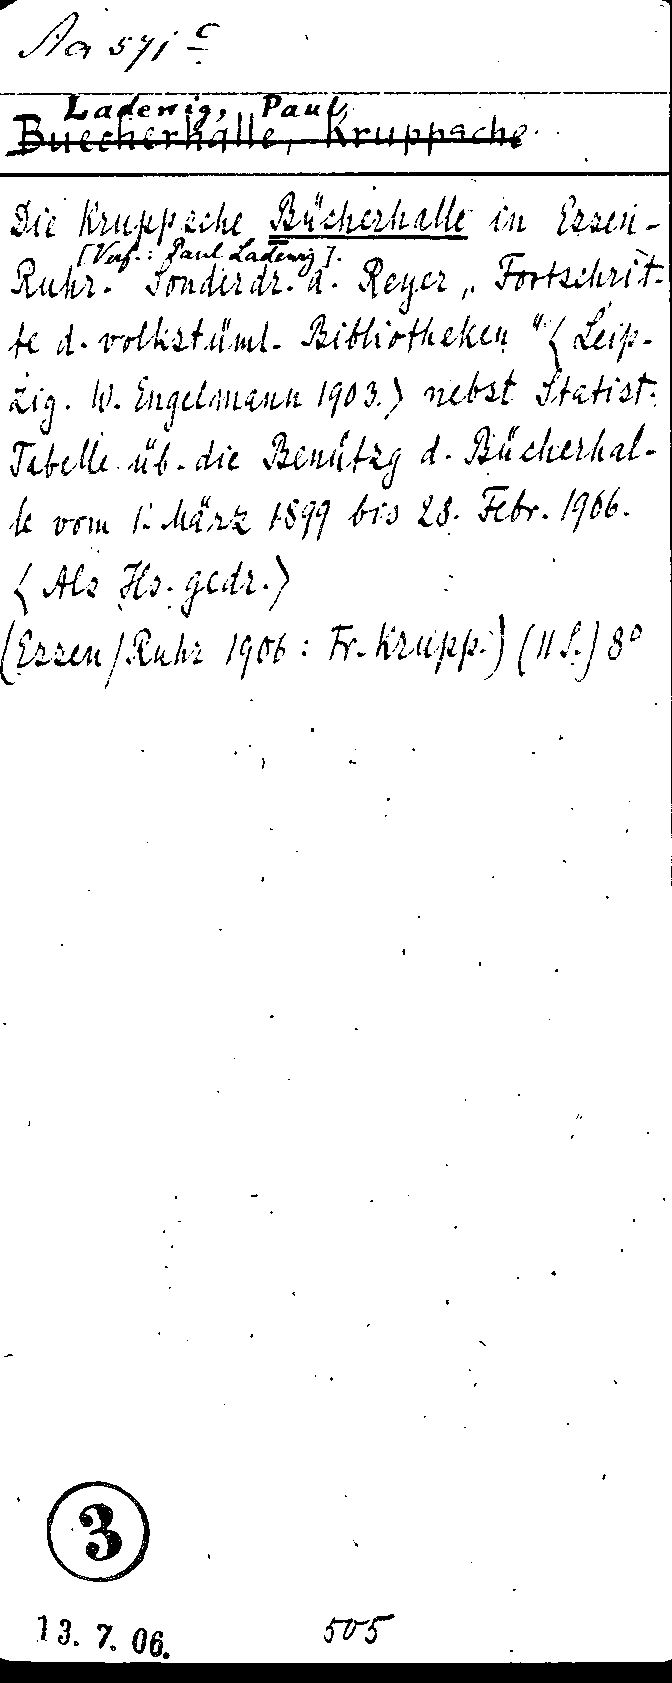 Aa 571 c
Ladewig, Paul
Buecherhalle, Kruppsche
Die Kruppsche Bücherhalle in Essen-
[Verf.: Paul Ladewig].
Ruhr. Sonderdr. a. Reyer „Fortschrit-
te d. volkstüml. Bibliotheken" < Leip-
zig. W. Engelmann 1903.> nebst Statist.
Tabelle üb. die Benützg d. Bücherhal-
le vom 1. März 1899 bis 28. Febr. 1906.
< Als Hs. gedr.>
(Essen/Ruhr 1906: Fr. Krupp.) (11 S.) 8°
3
13. 7. 06.
505